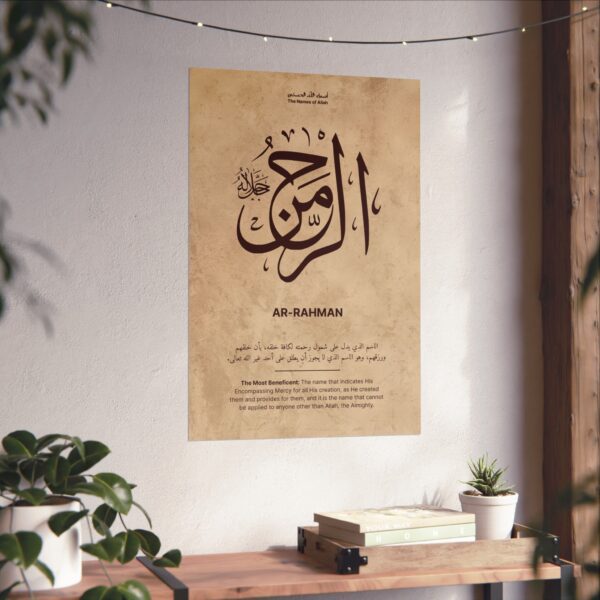 أسماء الله الحسنى
The Names of Allah
الرحمن
جل جلاله
AR-RAHMAN
الاسم الذي يدل على شمول رحمته لكافة خلقه، بأن خلقهم
ورزقهم، وهو الاسم الذي لا يجوز أن يطلق على أحد غير الله تعالى.
The Most Beneficent: The name that indicates His
Encompassing Mercy for all His creation, as He created
them and provides for them, and it is the name that cannot
be applied to anyone other than Allah, the Almighty.